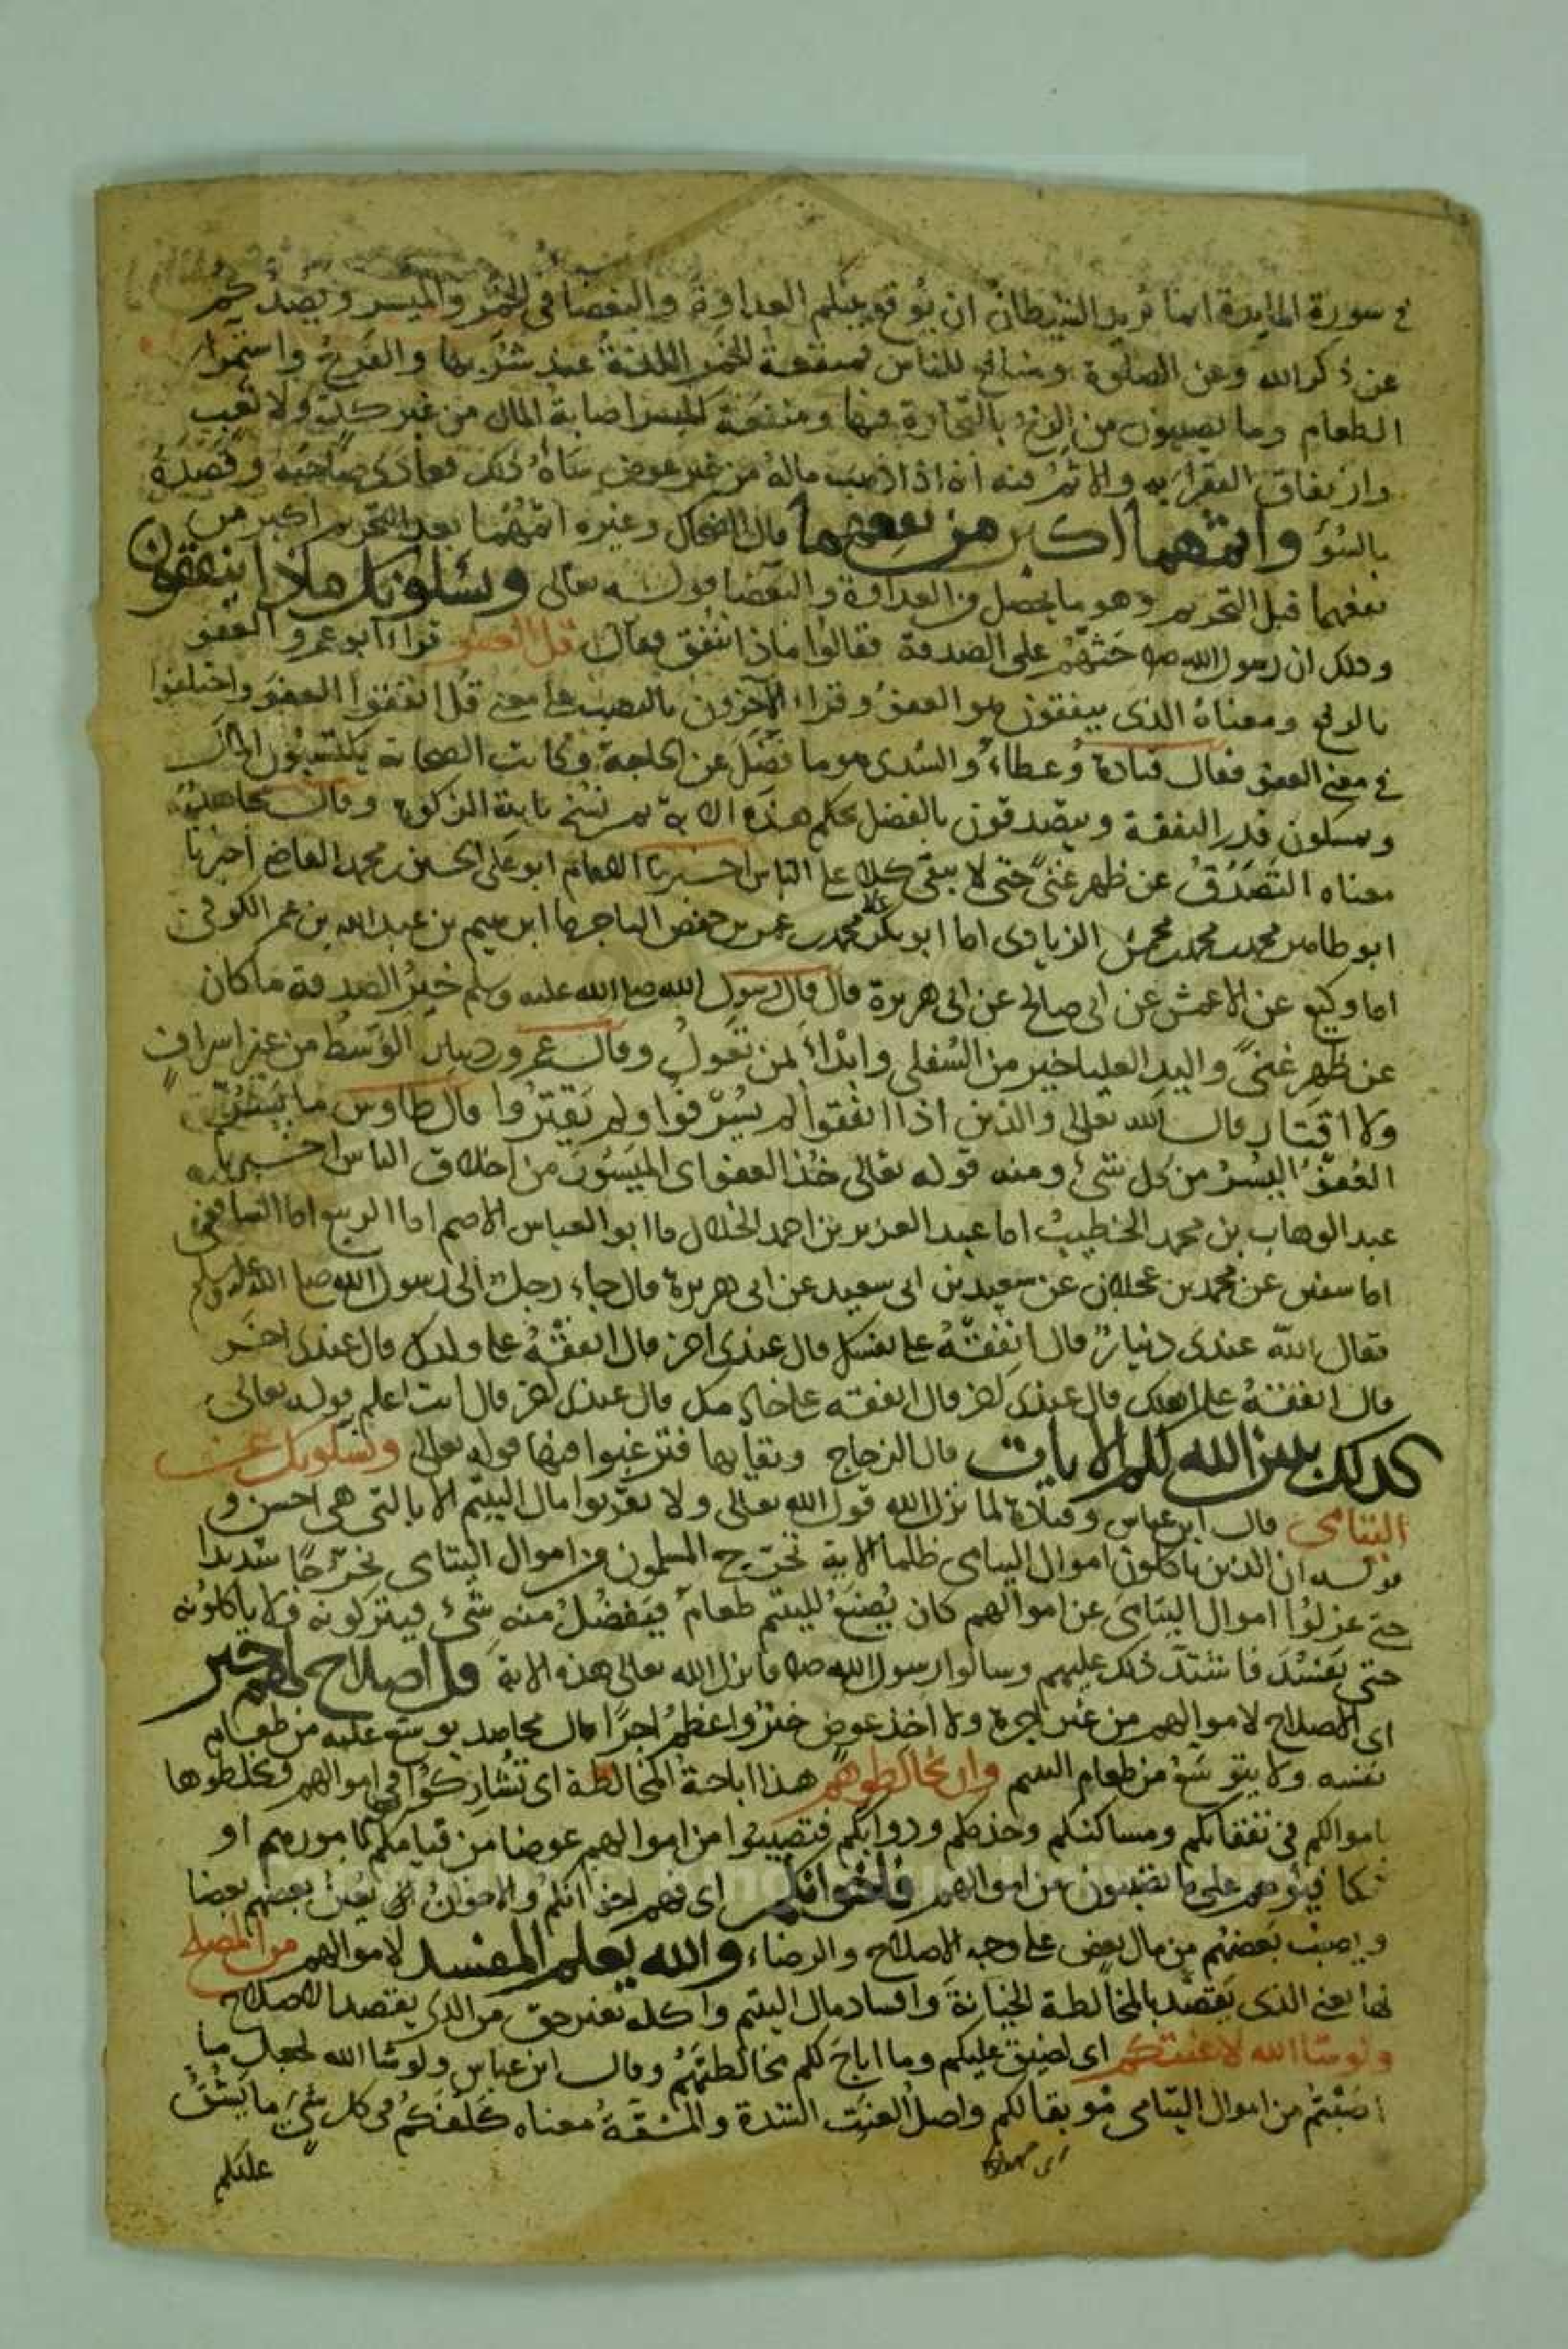 في سورة المايدة انما يريد الشيطان ان يوقع بينكم العداوة والبغضا في الخمر والميسر ويصدكم
عن ذكر الله وعن الصلوة ومنافع للناس فمنفعة الخمر اللذة عند شربها والفرح واستمرا
الطعام وما يصيبون من الربح بالتجارة فيها ومنفعة الميسر اصابة المال من غير كد ولا تعب
وارتفاق الفقرا به والاثم فيه انه اذا ذهب ماله من غير عوض ساه ذلك فعادى صاحبه وقصده
بالسو واثمهما اكبر من نفعهما قال الضحاك وغيره اثمهما بعد التحريم اكبر من
نفعهما قبل التحريم وهو ما يحصل من العداوة والبغضا قوله تعالى ويسلونك ماذا ينفقون
وذلك ان رسول الله صلا حثهم على الصدقة فقالوا ماذا ننفق فقال قل العفو قراء ابو عمرو العفو
بالرفع ومعناه الذى ينفقون هو العفو وقراء الآخرون بالنصب على معنى قل انفقوا العفو واختلفوا
في معنى العفو فقال قتادة وعطاء والسدى هو ما فضل عن الحاجة وكانت الصحابة يكتسبون المال
ويمسكون قدر النفقة ويتصدقون بالفضل بحكم هذه الاية ثم نسخ باية الزكوة وقال مجاهد
معناه التصدق عن ظهر غنى حتى لا يبقى كلا على الناس اخبرنا الامام ابو على الحسين بن محمد القاضى اخبرنا
ابو طاهر محمد بن محمد بن محمش الزيادى انا ابو بكر محمد بن عمر بن حفص التاجر نا ابرهيم بن عبد الله بن عمر الكوفى
انا وكيع عن الاعمش عن ابى صالح عن ابى هريرة قال قال رسول الله صلى الله عليه وسلم خير الصدقة ما كان
عن ظهر غنى واليد العليا خير من السفلى وابداء لمن تعول وقال عمرو بن دينار الوسط من غير اسراف
ولا اقتار قال الله تعالى والذين اذا انفقوا لم يسرفوا ولم يقتروا قال طاوس ما يسر
العفو اليسر من كل شئ ومنه قوله تعالى خذ العفو اى الميسور من اخلاق الناس اخبرنا
عبد الوهاب بن محمد الخطيب انا عبد العزيز بن احمد الخلال نا ابو العباس الاصم انا الربيع انا الشافعى
انا سفين عن محمد بن عجلان عن سعيد بن ابى سعيد عن ابى هريرة قال جاء رجل الى رسول الله صلى الله عليه وسلم
فقال انه عندى دينار قال انفقه على نفسك قال عندى اخر قال انفقه على ولدك قال عندى اخر
قال انفقه على اهلك قال عندى اخر قال انفقه على خادمك قال عندى اخر قال انت اعلم قوله تعالى
كذلك يبين الله لكم الايات قال الزجاج وبقايها فترغبوا فيها قوله تعالى ويسلونك عن
اليتامى قال ابن عباس وقتادة لما نزل الله قول الله تعالى ولا تقربوا مال اليتيم الا بالتى هى احسن و
قوله ان الذين ياكلون اموال اليتامى ظلما الاية تحرج المسلمون من اموال اليتامى تحرجا شديدا
حتى عزلوا اموال اليتامى عن اموالهم كان يصنع لليتيم طعام فيفضل منه شئ فيتركونه ولا ياكلونه
حتى يفسد فاشتد ذلك عليهم وسالوا رسول الله صلا فانزل الله تعالى هذه الاية قل اصلاح لهم خير
اى الاصلاح لاموالهم من غير اجرة ولا اخذ عوض خير واعظم اجرا قال مجاهد يوسع عليه من طعام
نفسه ولا يتوسع من طعام اليتيم وان تخالطوهم هذا اباحة المخالطة اى تشاركوا في اموالهم وتخلطوها
باموالكم في نفقاتكم ومساكنكم وخدمكم ودوابكم فتصيبوا من اموالهم عوضا من قيامكم بامورهم او
تكافيوهم على ما تصيبون من اموالهم فاخوانكم اى فهم اخوانكم والاخوان يعين بعضهم بعضا
ويصيب بعضهم من مال بعض على وجه الاصلاح والرضاء والله يعلم المفسد لاموالهم من المصلح
لها يعنى الذى يقصد بالمخالطة الخيانة وافساد مال اليتيم واكله بغير حق من الذى يقصد الاصلاح
ولو شا الله لاعنتكم اى لضيق عليكم وما اباح لكم مخالطتهم وقال ابن عباس ولو شا الله لجعل ما
اصبتم من اموال اليتامى موبقا لكم واصل العنت الشدة والمشقة معناه كلفكم في كل شئ ما يشق
عليكم